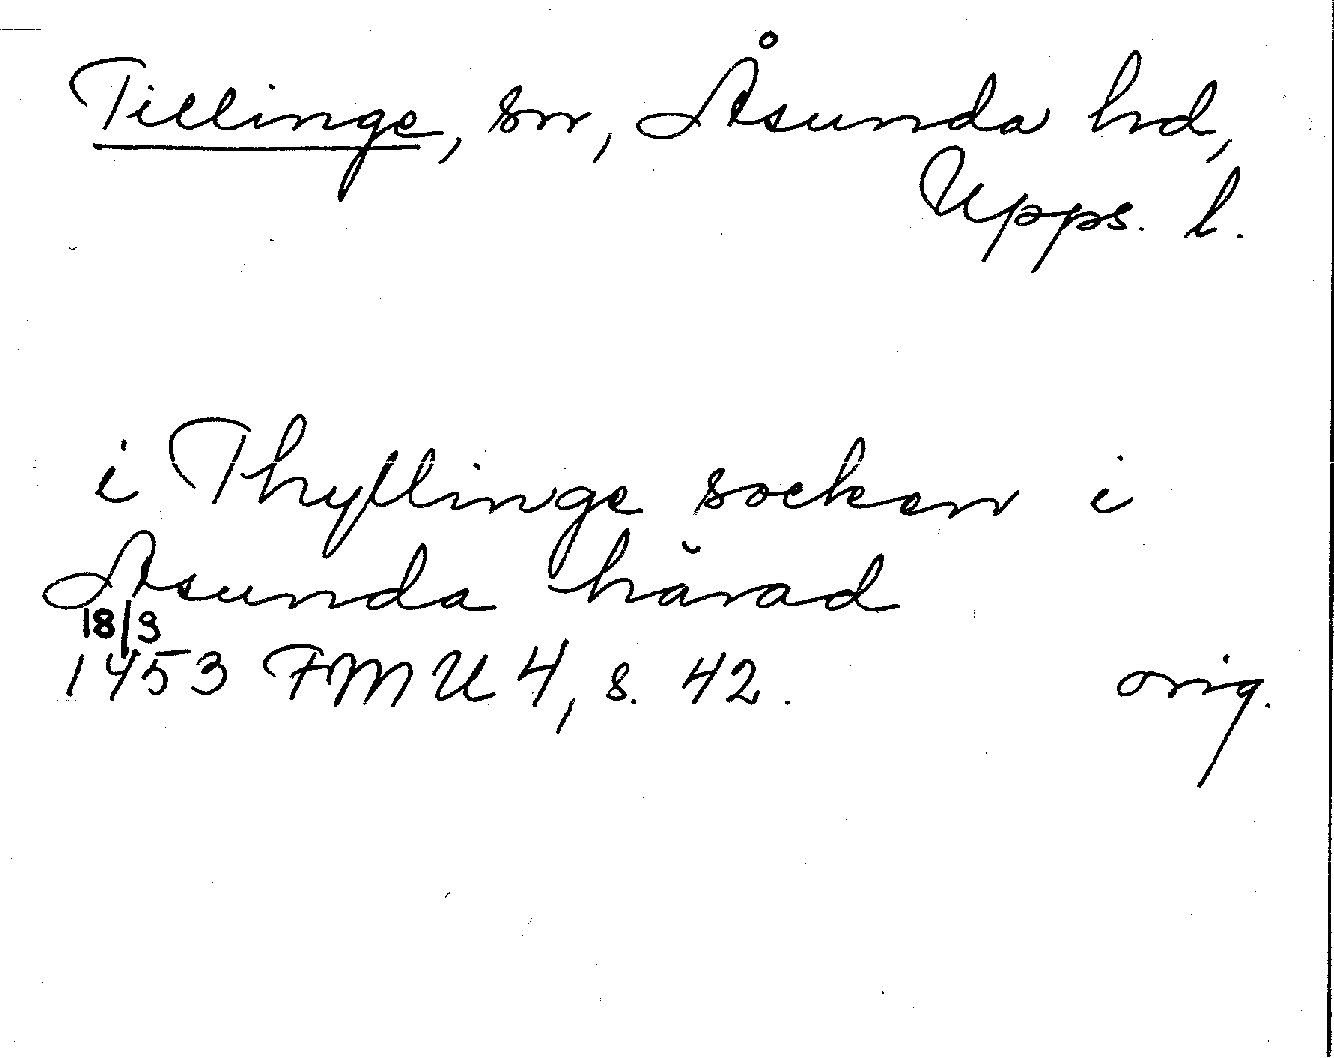 Tillinge, sn, Åsunda hd,
Upps. l.
i Thyllinge socken i
Asunda härad
18/9
1453 FMU 4, s. 42. orig.